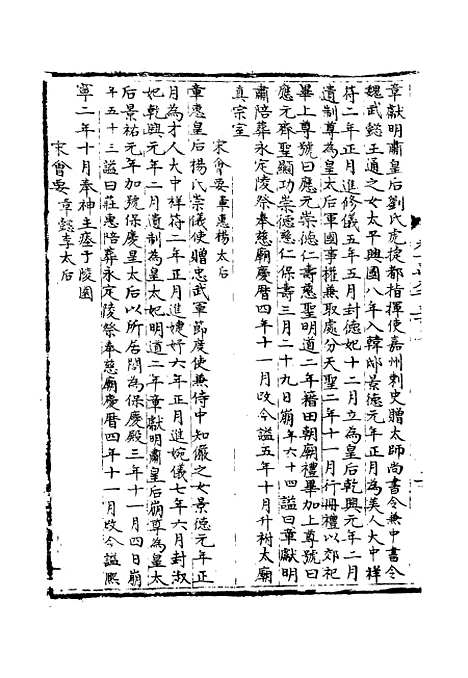 章獻明肅皇后劉氏虎捷都指揮使嘉州刺史贈太師尚書令兼中書令
魏武懿王通之女太平興國八年入韓邸景德元年正月為美人大中祥
符二年正月進修儀五年五月封德妃十二月立為皇后乾興元年二月
遺制尊為皇太后軍國事權兼取處分天聖二年十一月行冊禮以郊祀
畢上尊號曰應元崇德仁壽慈聖明道二年籍田朝廟禮畢加上尊號曰
應元齊聖顯功崇德慈仁保壽三月二十九日崩年六十四諡曰章獻明
肅陪葬永定陵祭奉慈廟慶曆四年十一月改今諡五年十月升祔太廟
真宗室
宋會要章惠楊太后
章惠皇后楊氏崇儀使贈忠武軍節度使兼侍中知儼之女景德元年正
月為才人大中祥符二年正月進婕妤六年正月進婉儀七年六月封淑
妃乾興元年二月遺制為皇太妃明道二年章獻明肅皇后崩尊為皇太
后景祐元年加號保慶皇太后以所居閤為保慶殿三年十一月四日崩
年五十三諡曰莊惠陪葬永定陵祭奉慈廟慶曆四年十一月改今諡熙
寧二年十月奉神主瘞于陵園
宋會要章懿李太后